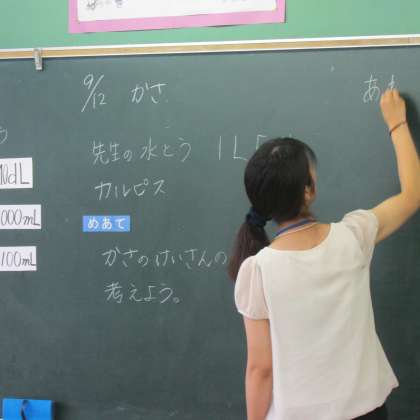 9/12 かさ
先生の水とう 1L
カルピス
めあて
かさのけいさんの
考えよう。
あ
10dL
1000mL
100mL